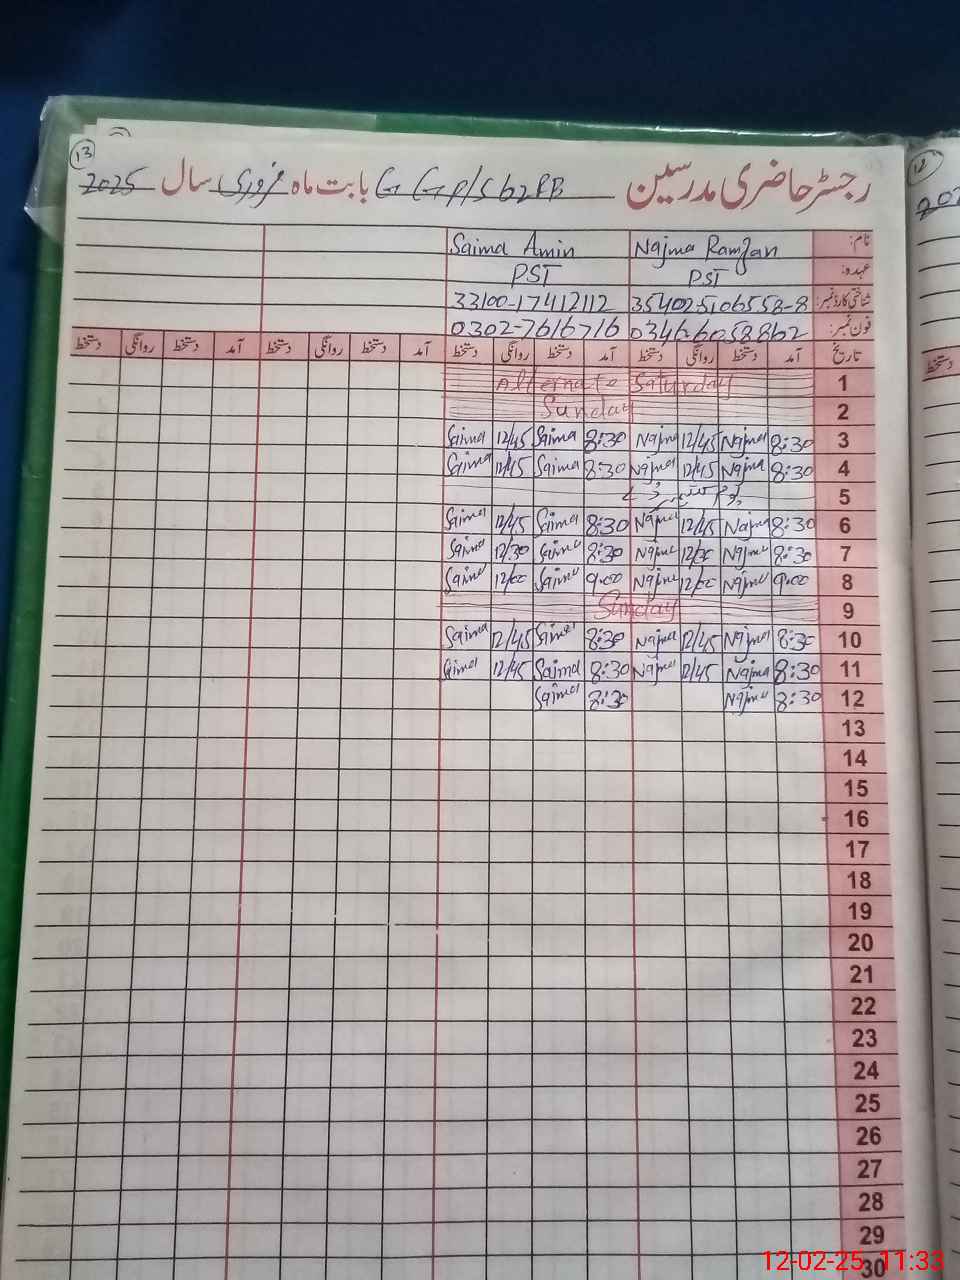 13
رجسٹر حاضری مدرسین G G P/S 62RB بابت ماہ فروری سال 2025
نام: Najma Ramzan Saima Amin
عہدہ: PST PST
شناختی کارڈ نمبر: 354025106558-8 33100-17412112
فون نمبر: 0346-6058862 0302-7616716
تاریخ آمد دستخط روانگی دستخط آمد دستخط روانگی دستخط آمد دستخط روانگی دستخط آمد دستخط روانگی دستخط
1 Alternate Saturday
2 Sunday
3 8:30 Najma 12/45 Najma 8:30 Saima 12/45 Saima
4 8:30 Najma 12/45 Najma 8:30 Saima 12/45 Saima
5 یوم کشمیر ڈے
6 8:30 Najma 12/45 Najma 8:30 Saima 12/45 Saima
7 8:30 Najma 12/30 Najma 8:30 Saima 12/30 Saima
8 9:00 Najma 12/00 Najma 9:00 Saima 12/00 Saima
9 Sunday
10 8:30 Najma 12/45 Najma 8:30 Saima 12/45 Saima
11 8:30 Najma 12/45 Najma 8:30 Saima 12/45 Saima
12 8:30 Najma 8:30 Saima
13
14
15
16
17
18
19
20
21
22
23
24
25
26
27
28
29
30
12-02-25 11:33